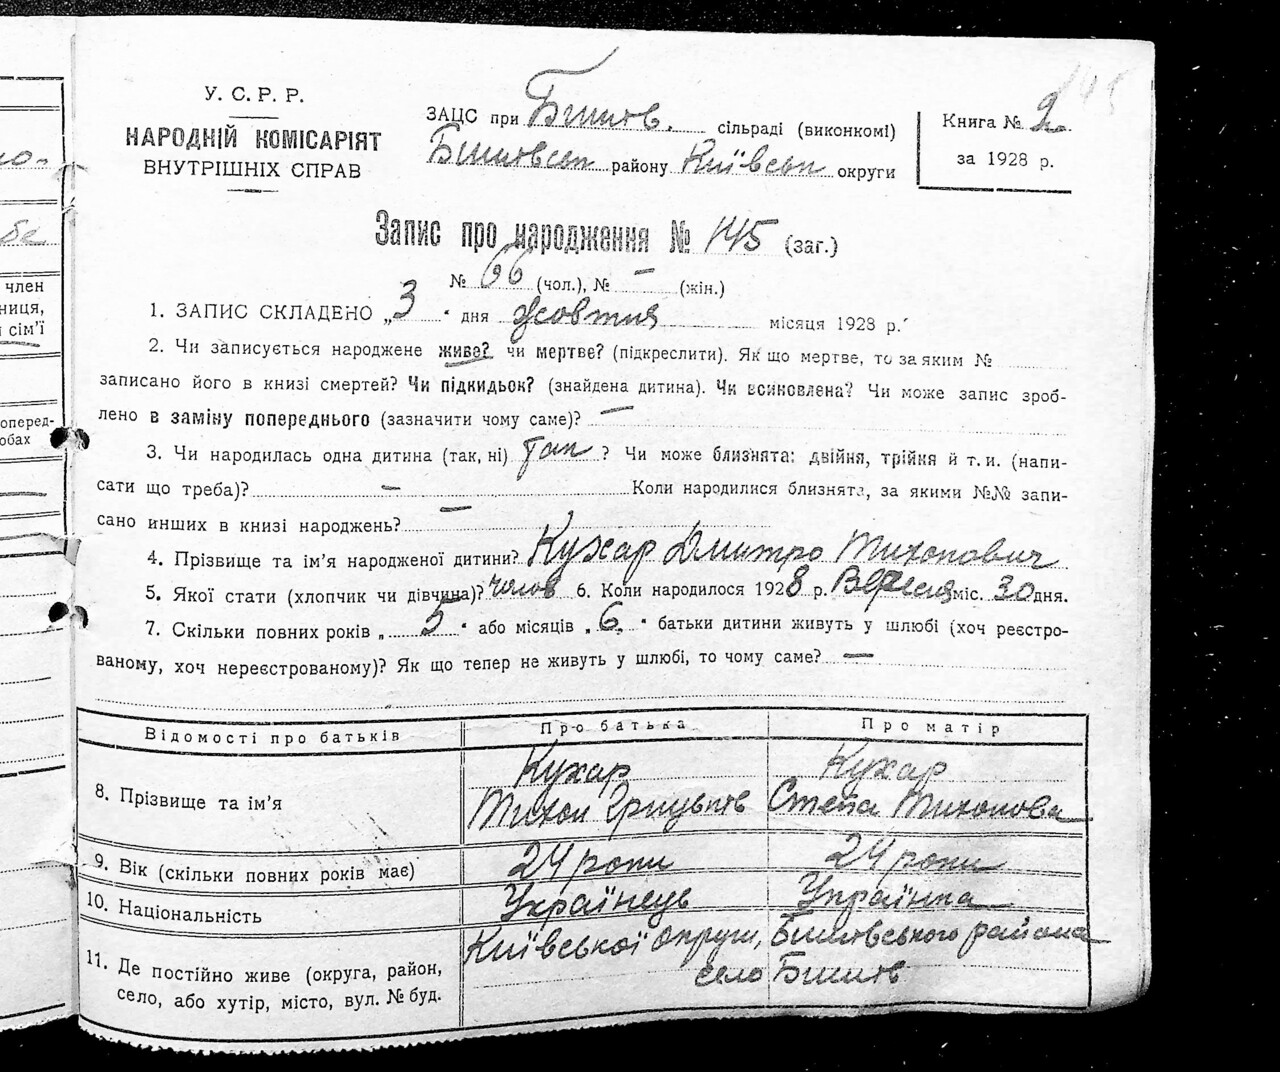 145
У. С. Р. Р.
НАРОДНІЙ КОМІСАРІЯТ
ВНУТРІШНІХ СПРАВ
ЗАЦС при Бишів. сільраді (виконкомі)
Бишівськ району Київськ округи
Книга № 2
за 1928 р.
Запис про народження № 145 (заг.)
№ 66 (чол.), № — (жін.)
1. ЗАПИС СКЛАДЕНО „3 " дня жовтня місяця 1928 р.
2. Чи записується народжене живе? чи мертве? (підкреслити). Як що мертве, то за яким №
записано його в книзі смертей? Чи підкидьок? (знайдена дитина). Чи всиновлена? Чи може запис зроб-
лено в заміну попереднього (зазначити чому саме)? —
3. Чи народилась одна дитина (так, ні) Так ? Чи може близнята: двійня, трійня й т. и. (напи-
сати що треба)? — Коли народилися близнята, за якими №№ запи-
сано инших в книзі народжень? —
4. Прізвище та ім'я народженої дитини? Кухар Дмитро Тихонович
5. Якої стати (хлопчик чи дівчина)? чолов 6. Коли народилося 1928 р. Вересня міс. 30 дня.
7. Скільки повних років „ 5 " або місяців „ 6 " батьки дитини живуть у шлюбі (хоч реєстро-
ваному, хоч нереєстрованому)? Як що тепер не живуть у шлюбі, то чому саме? —
Відомості про батьків Про батька Про матір
8. Прізвище та ім'я Кухар Кухар
Тихон Грицьків Степа Тихонова
9. Вік (скільки повних років має) 24 роки 24 роки
10. Національність Українець Українка
11. Де постійно живе (округа, район, Київської округи, Бишівського района
село, або хутір, місто, вул. № буд. село Бишів
по-
бе
член
ниця,
сім'ї
оперед-
обах